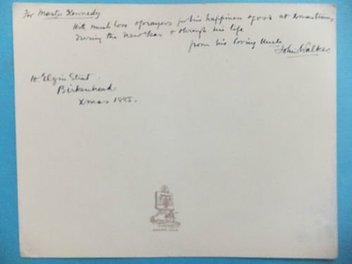 For Monty Kennedy
With much love & prayers for his happiness & good at Xmastime,
during the New Year & through his life
from his loving Uncle
John Walker
Elgin Street
Birkenhead
Xmas 1895.